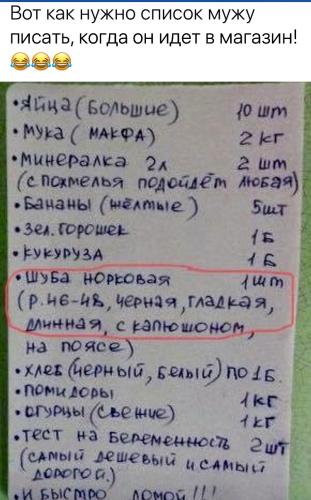 Вот как нужно список мужу
писать, когда он идет в магазин!
😂😂😂
• Яйца (большие) 10 шт
• Мука (МАКФА) 2 кг
• Минералка 2л 2 шт
(с похмелья подойдёт любая)
• Бананы (жёлтые) 5шт
• Зел. горошек 1Б
• Кукуруза 1 Б
• Шуба норковая 1шт
(р.46-48, черная, гладкая,
длинная, с капюшоном,
на поясе)
• хлеб (черный, белый) по 1Б.
• помидоры 1кг
• огурцы (свежие) 1кг
• тест на беременность 2шт
(самый дешевый и самый
дорогой.)
• и быстро домой!!!